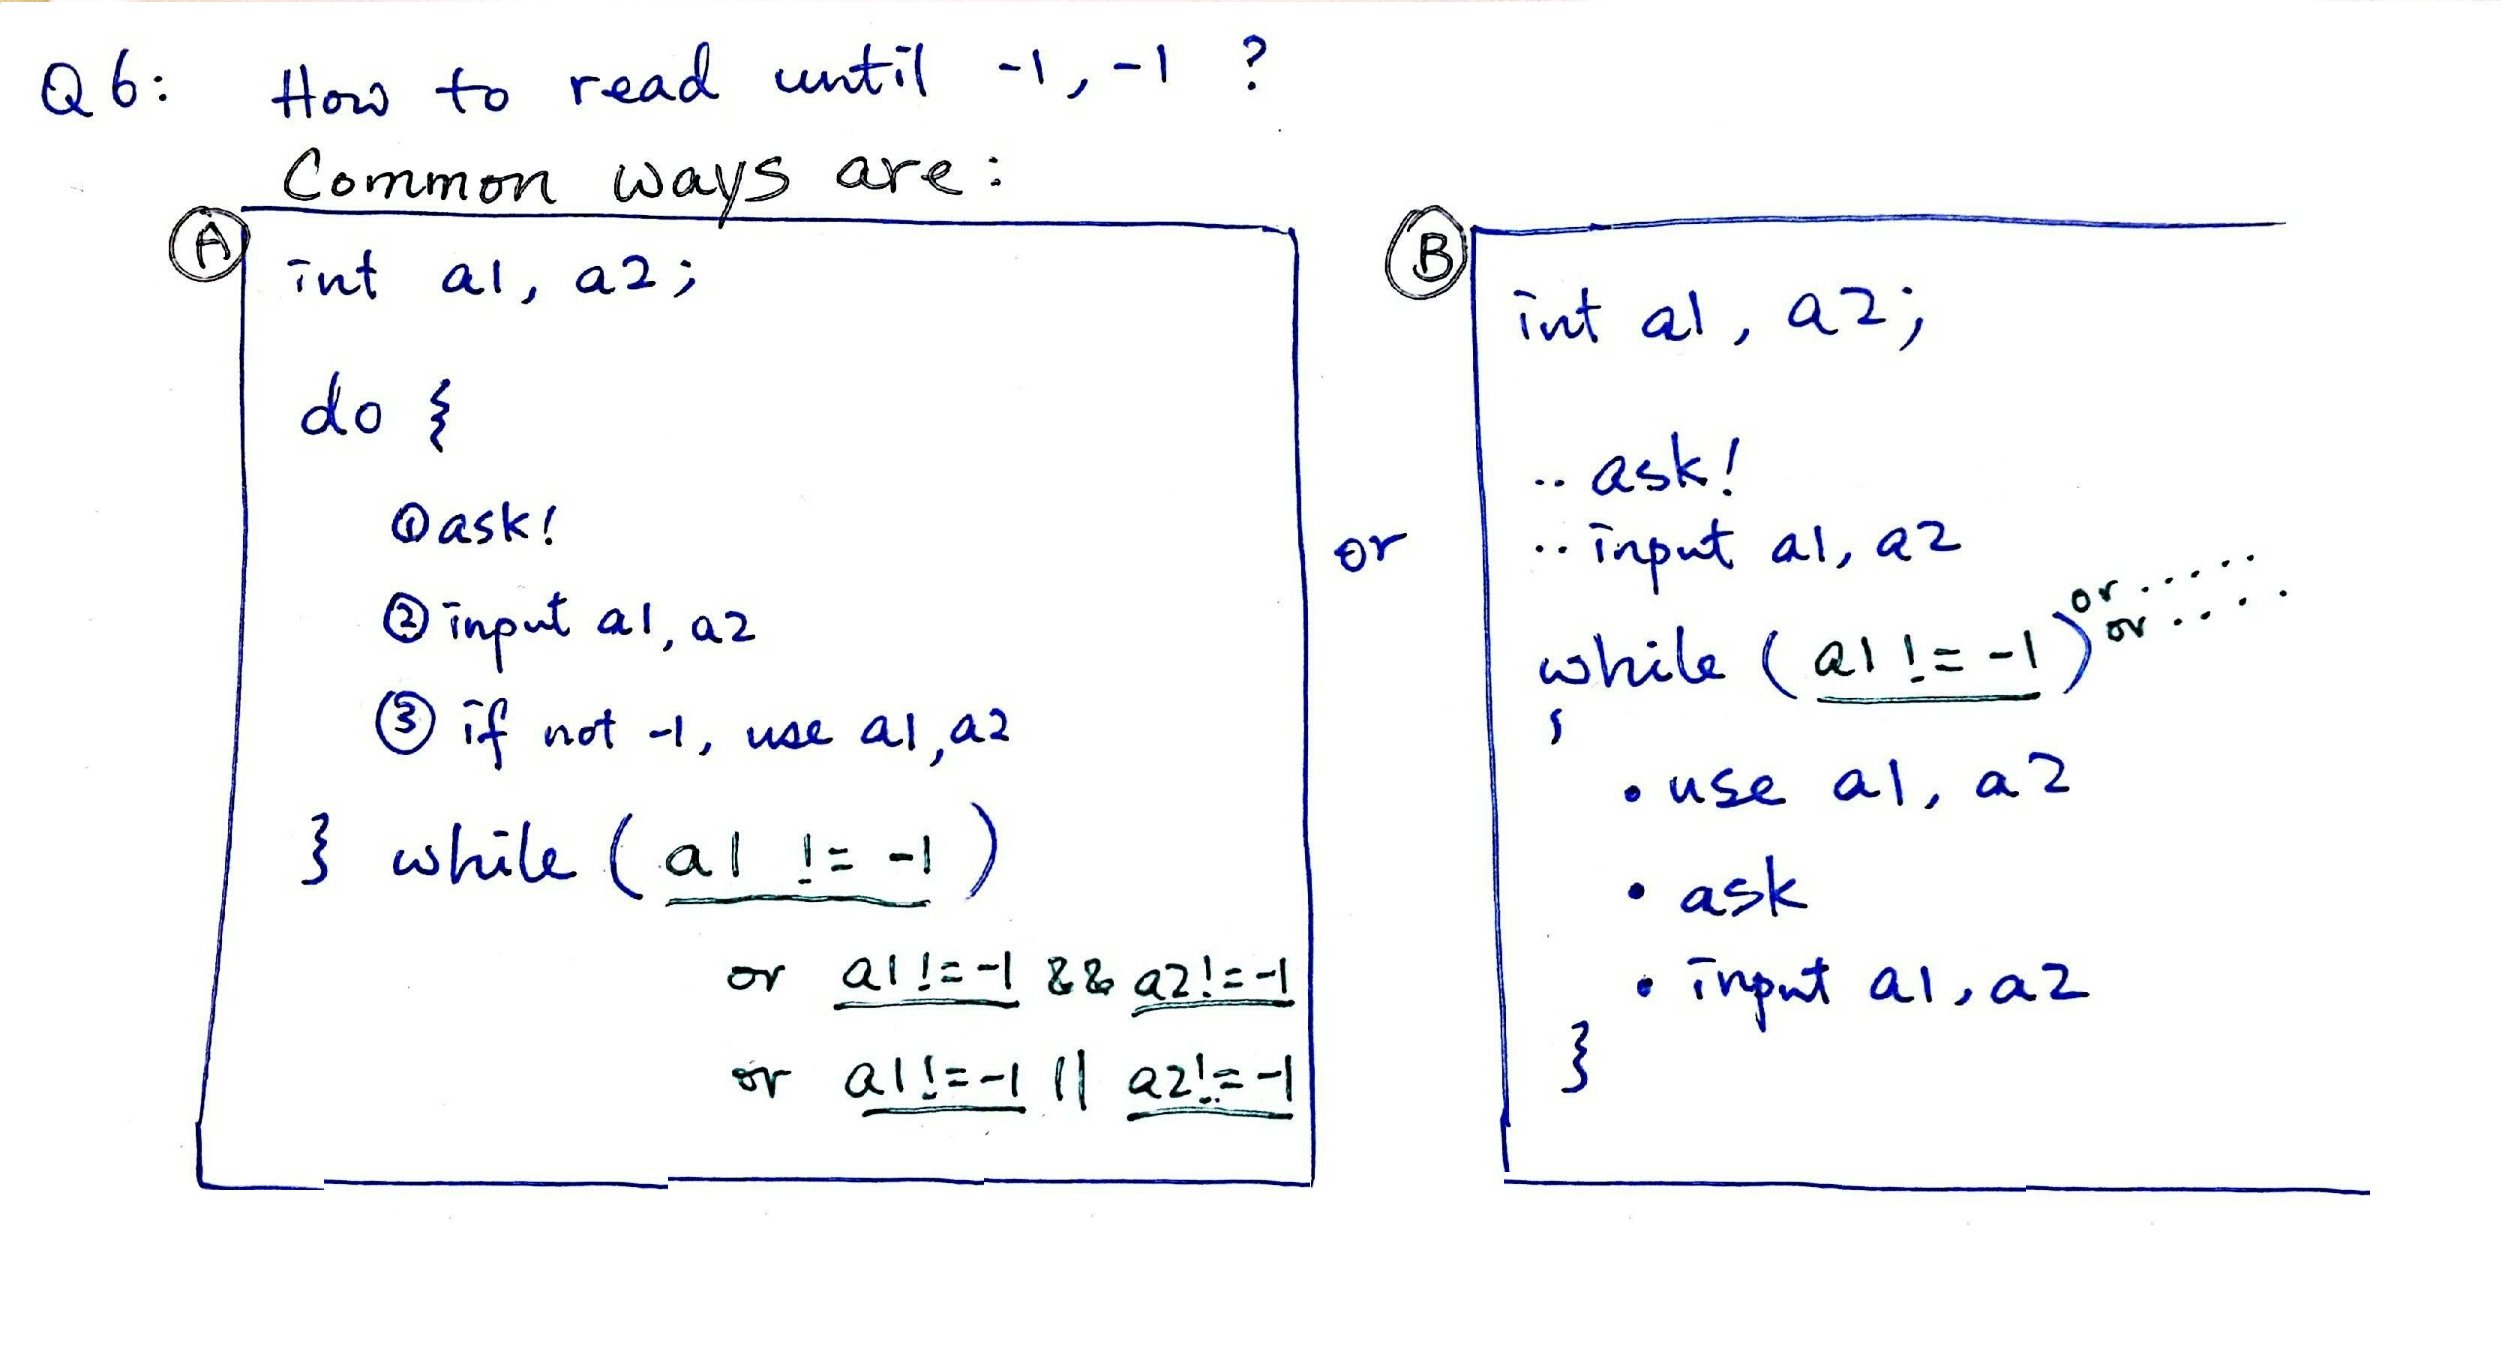 Q6: How to read until -1, -1 ?
Common ways are:
A
int a1, a2;
do {
① ask!
② input a1, a2
③ if not -1, use a1, a2
} while ( a1 != -1 )
or a1 != -1 && a2 != -1
or a1 != -1 || a2 != -1
or
B
int a1, a2;
.. ask!
.. input a1, a2
while ( a1 != -1 ) or .....
or ....
{
• use a1, a2
• ask
• input a1, a2
}